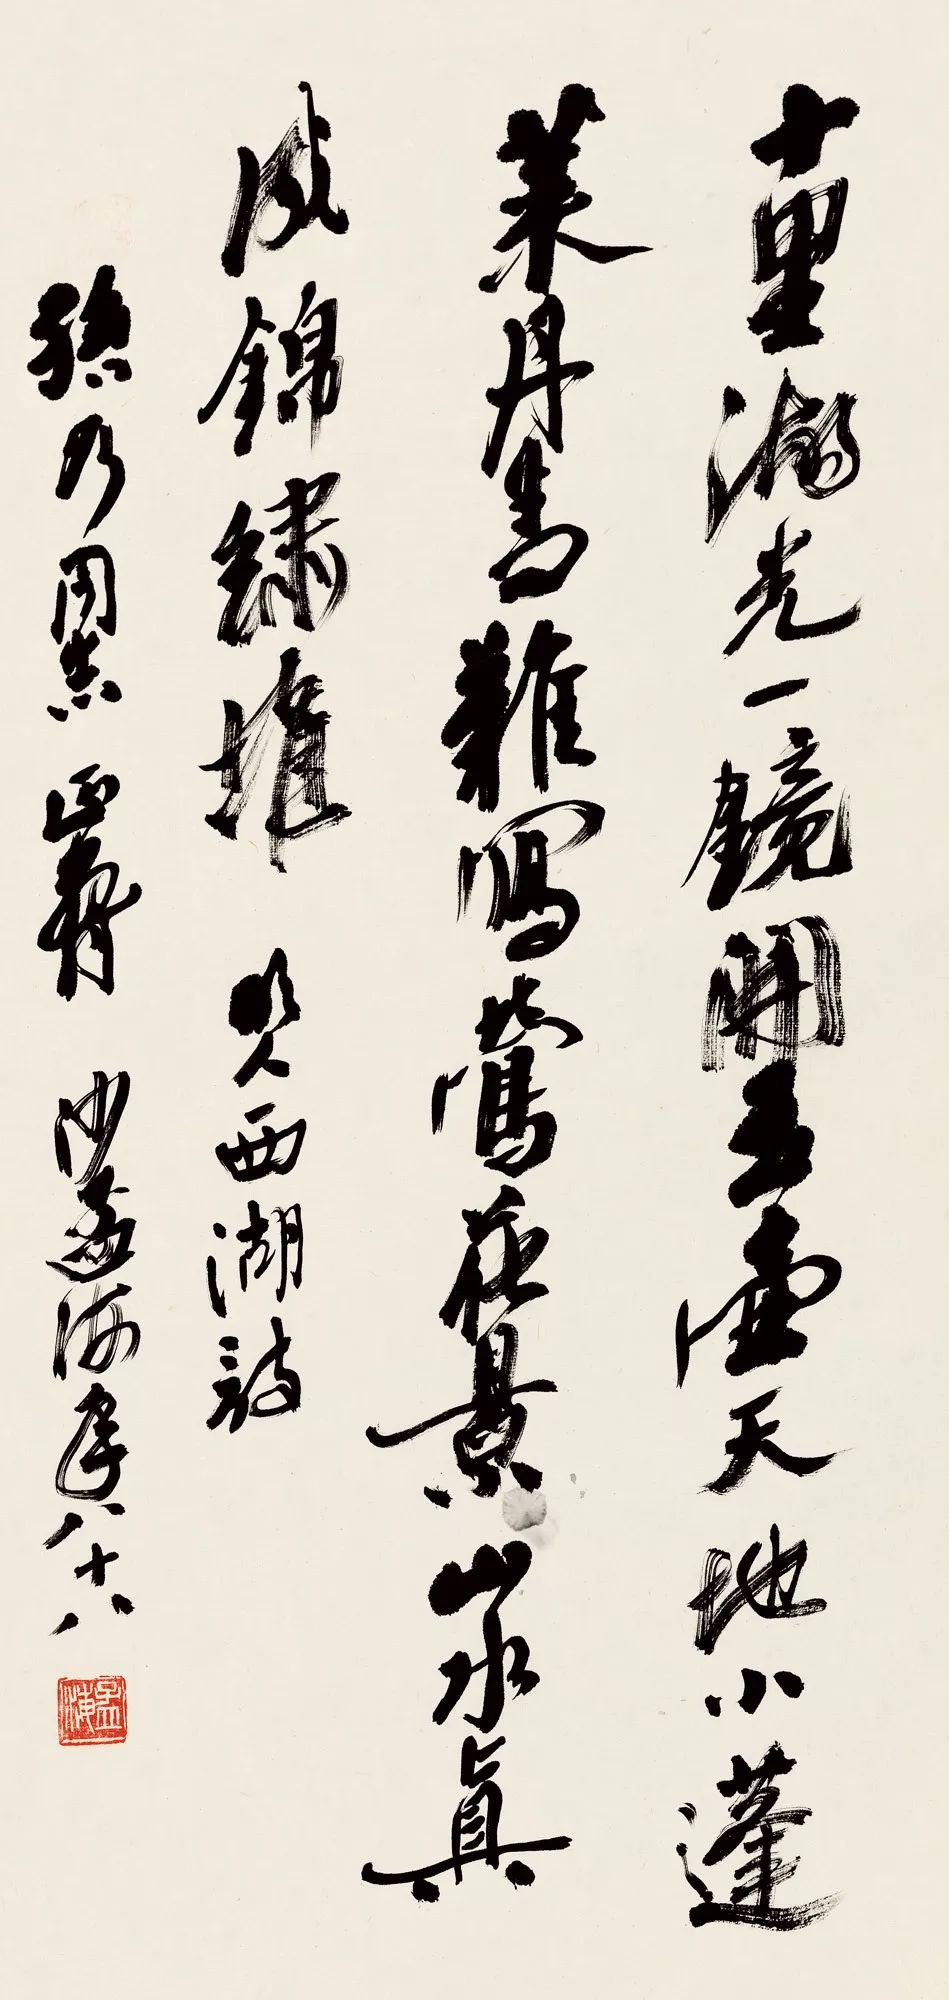 十里湖光一鏡開玉壺天地小蓬
萊丹青難寫鶯花景山水真
成錦繡堆 明人西湖詩
乃同志 正臂 沙孟海年八十八
孟海